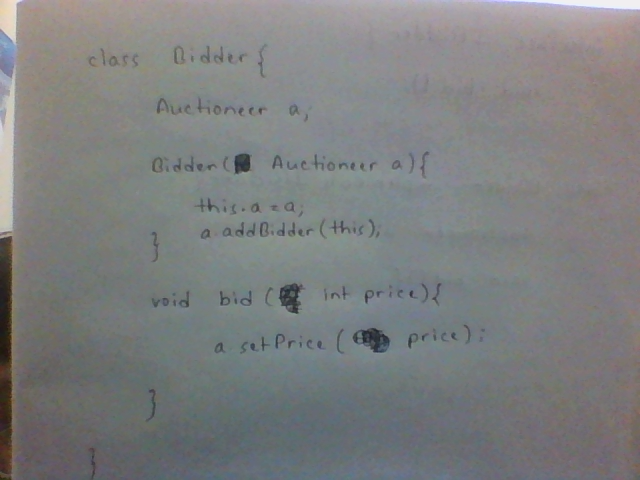 class Bidder {
Auctioneer a;
Bidder ( Auctioneer a) {
this.a = a;
a.addBidder (this);
}
void bid ( int price) {
a.setPrice ( price);
}
}